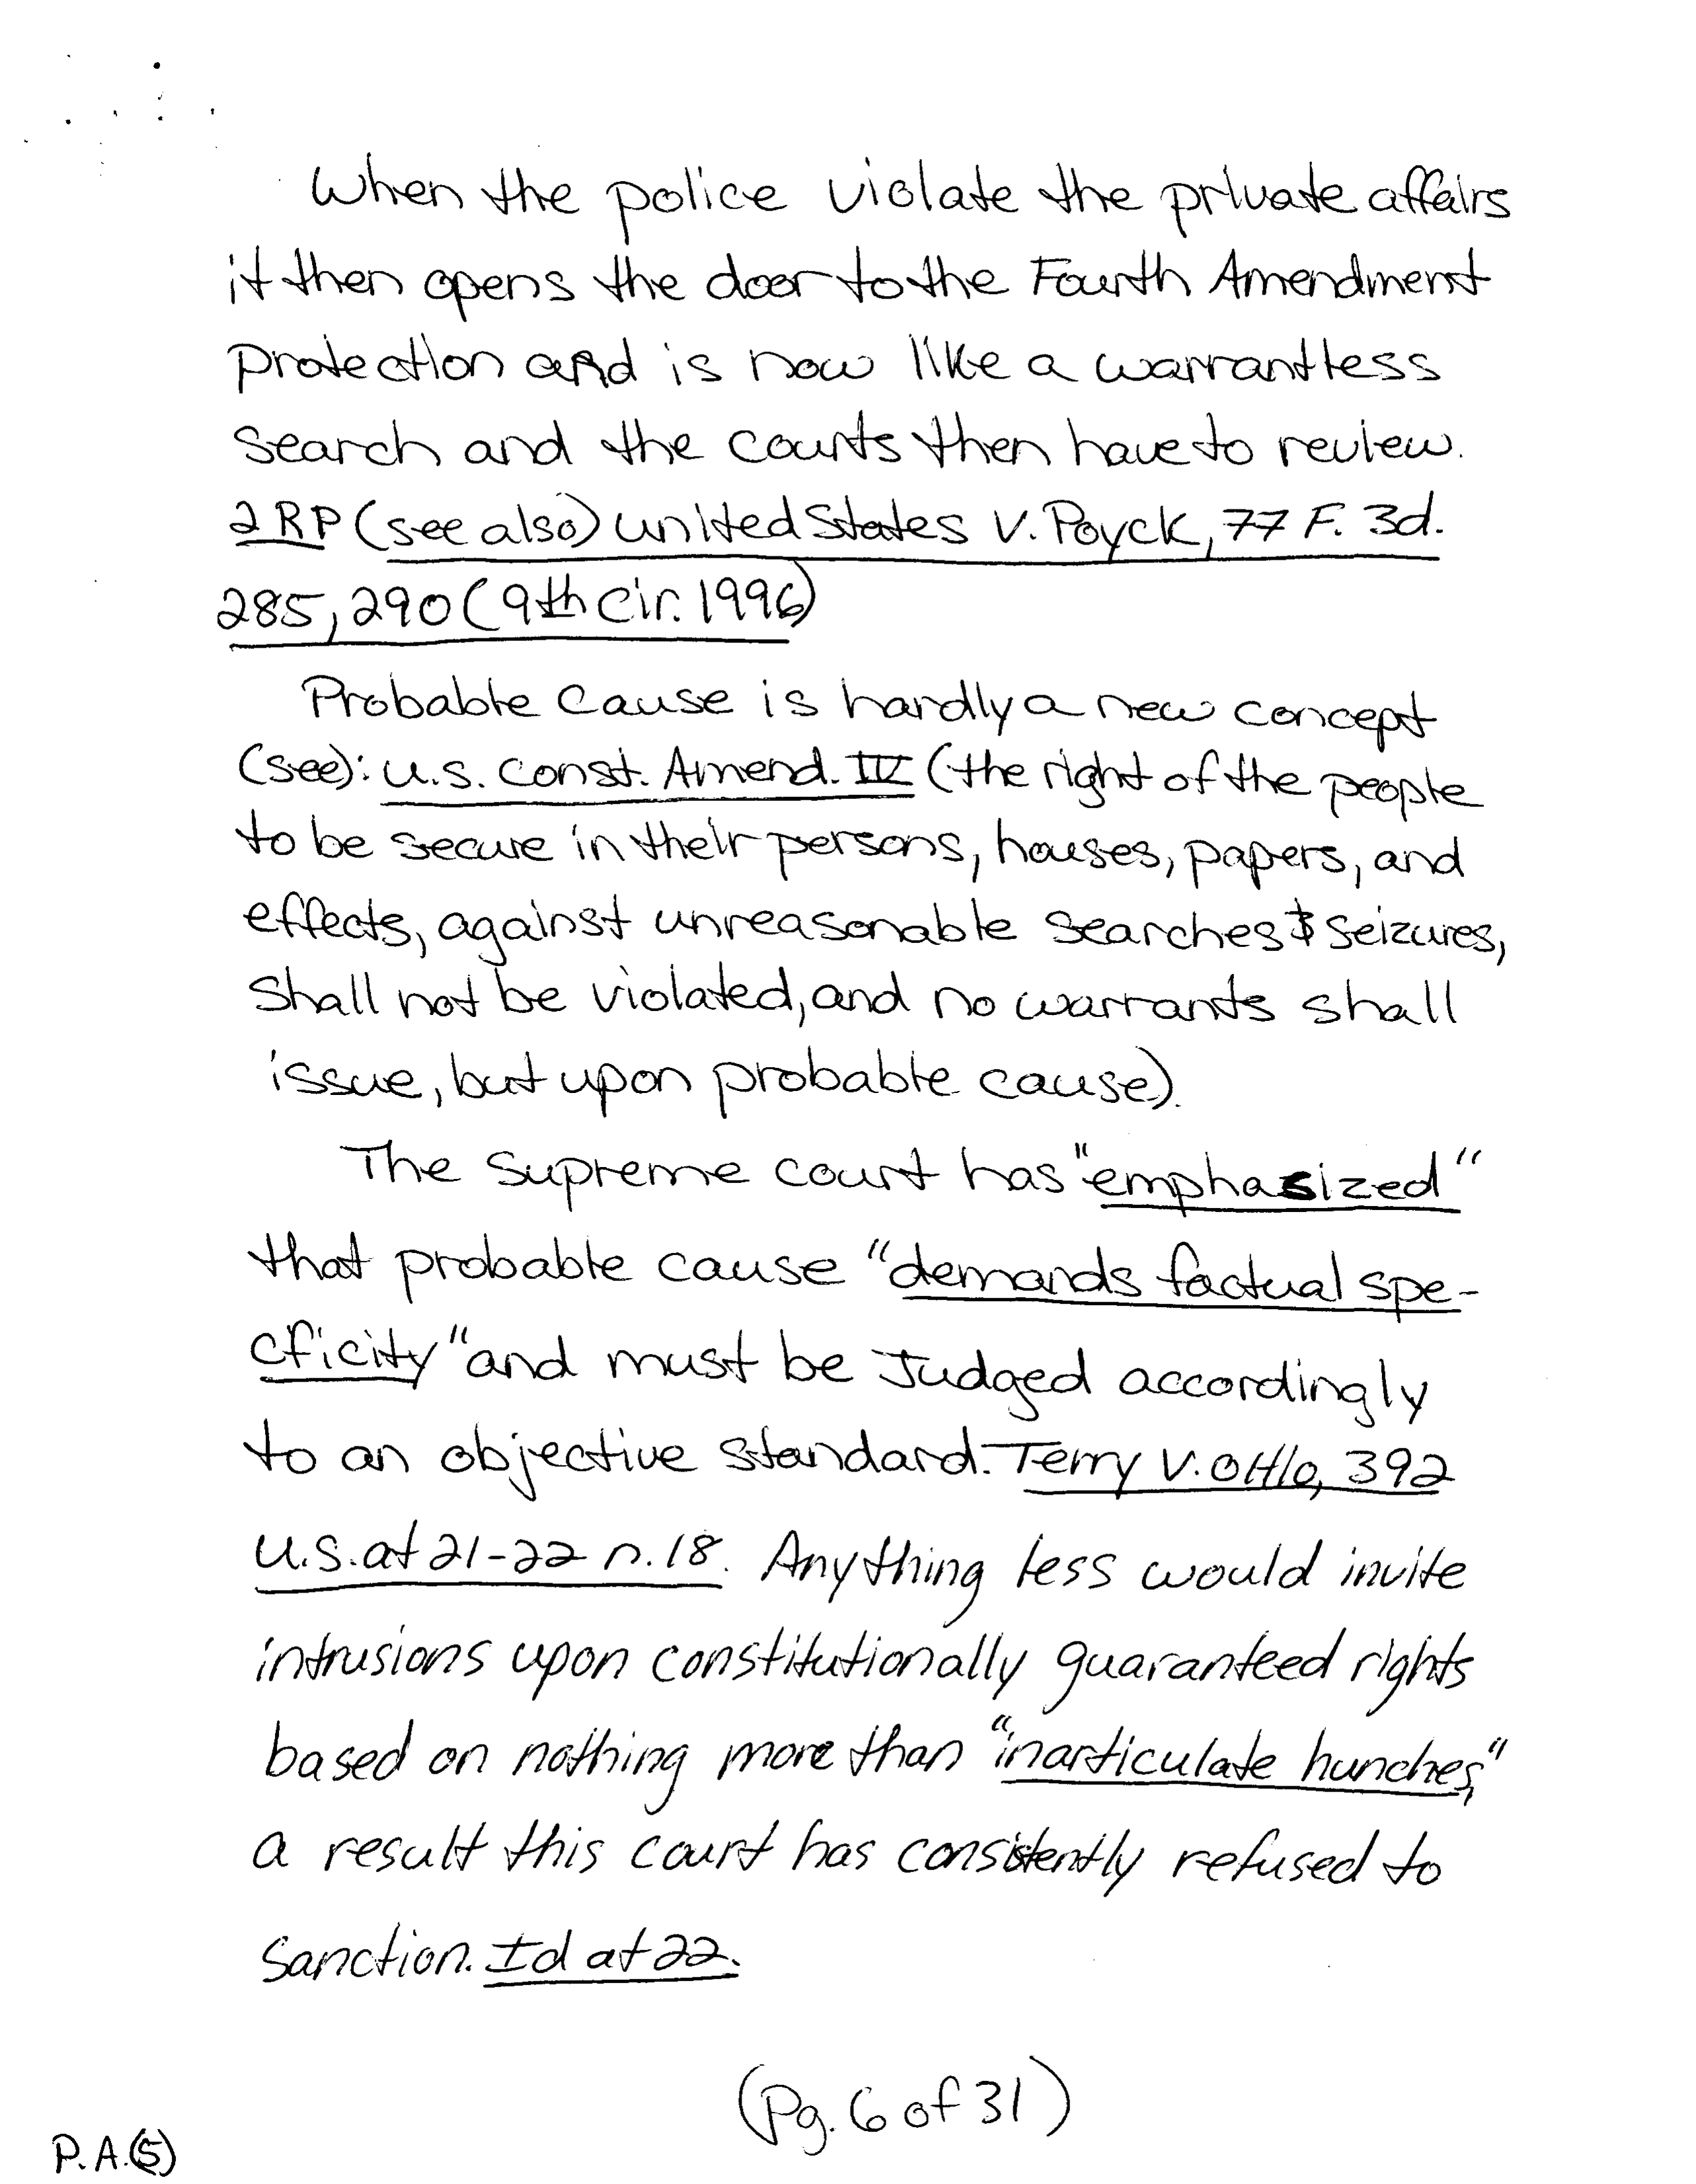 When the police violate the private affairs
it then opens the door to the Fourth Amendment
Protection and is now like a warrantless
search and the courts then have to review.
2 RP (see also) united States v. Poyck, 77 F. 3d.
285, 290 (9th Cir. 1996)
Probable Cause is hardly a new concept
(see): U.S. Const. Amend. IV (the right of the people
to be secure in their persons, houses, papers, and
effects, against unreasonable searches & seizures,
shall not be violated, and no warrants shall
issue, but upon probable cause).
The Supreme court has "emphasized"
that probable cause "demands factual spe-
cficity" and must be Judged accordingly
to an objective standard. Terry v. OHIo, 392
U.S. at 21-22 n.18. Anything less would invite
intrusions upon constitutionally guaranteed rights
based on nothing more than "inarticulate hunches,"
a result this court has consistently refused to
sanction. Id at 22.
(Pg. 6 of 31)
P.A.(5)